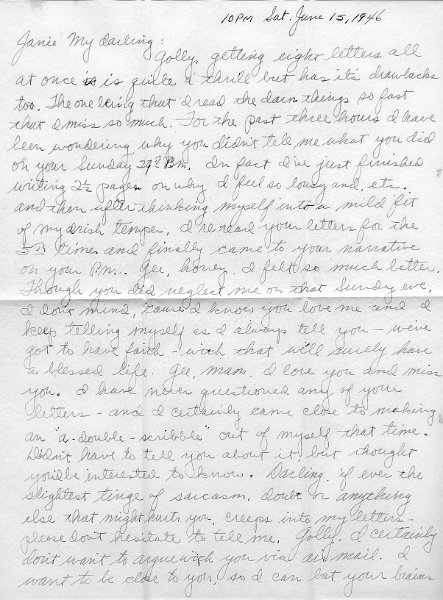 10PM Sat. June 15, 1946
Janie My darling:
Golly, getting eight letters all
at once is is quite a thrill but has its drawbacks
too. The one being that I read the darn things so fast
that I miss so much. For the past three hours I have
been wondering why you didn't tell me what you did
on your Sunday P.m. In fact I've just finished
writing 2½ pages on why I feel so lousy and, etc.
and then after thinking myself into a mild fit
of my Irish temper, I re read your letters for the
5th times and finally came to your narrative
on your P.m. Gee, honey, I felt so much better.
Though you did neglect me on that Sunday eve,
I don't mind, 'cause I know you love me and I
keep telling myself as I always tell you - we've
got to have faith - with that will surely have
a blessed life. Gee, mam, I love you and miss
you. I have never questioned any of your
letters - and I certainly came close to making
an "a-double-scribble" out of myself that time.
Didn't have to tell you about it but thought
you'd be interested to know. Darling, if ever the
slightest tinge of sarcasm, doubt or anything
else that might hurts you, creeps into my letters -
please don't hesitate to tell me. Golly, I certainly
don't want to argue with you via air mail. I
want to be close to you, so I can bat your brains